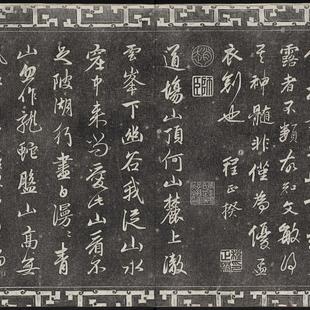 露者不類故知文敏得
其神髓非僅為優孟
衣冠也 程正揆
道場山頂何山麓上澈
雲峯下幽谷我從山水
窟中来尚愛此山看不
足陂湖行盡白漫漫青
山忽作龍蛇盤山高無